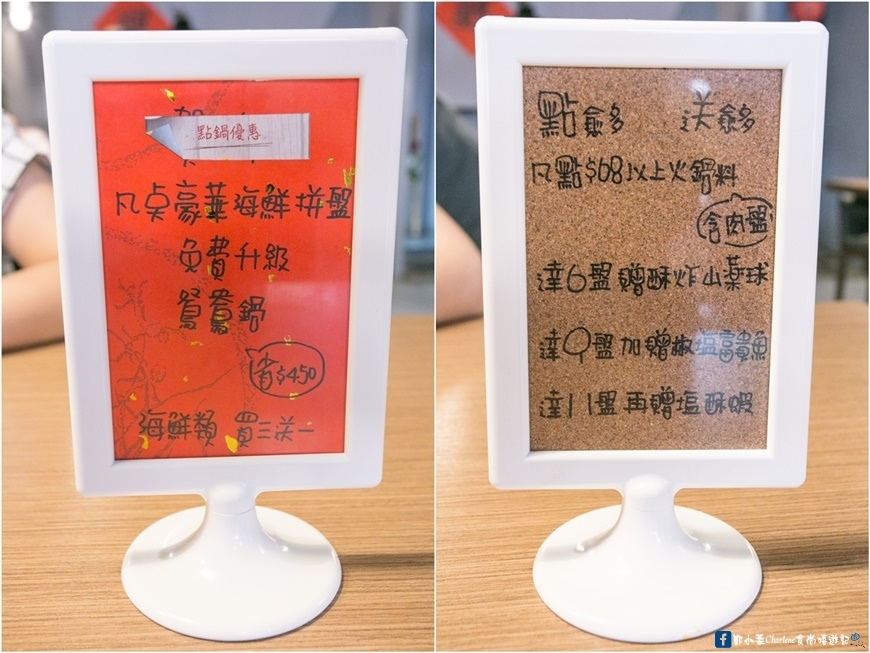 點鍋優惠
凡点豪華海鮮拼盤
免費升級
鴛鴦鍋
省$450
海鮮類 買三送一
點愈多 送愈多
凡點$68以上火鍋料
含肉盤
達6盤贈酥炸山藥球
達9盤加贈椒塩富貴魚
達11盤再贈塩酥蝦
Charlene食尚嬉遊記